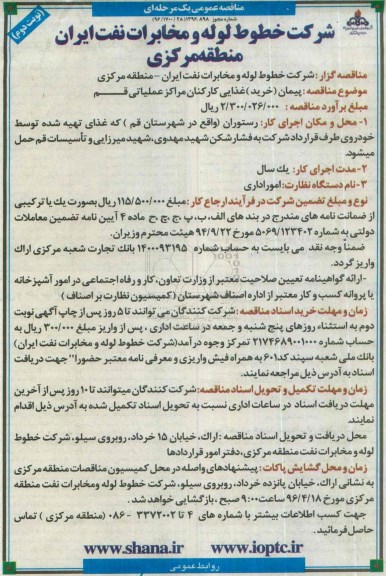 مناقصه عمومی یک مرحله ای
شماره مجوز ۱۳۹۶.۸۹۸ (۹۶/۱۷۰۰/۲۸)
(نوبت دوم)
شرکت خطوط لوله و مخابرات نفت ایران
منطقه مرکزی
مناقصه گزار: شرکت خطوط لوله و مخابرات نفت ایران - منطقه مرکزی
موضوع مناقصه: پیمان (خرید) غذایی کارکنان مراکز عملیاتی قم
مبلغ برآورد مناقصه: ۲/۳۰۰/۰۲۶/۰۰۰ ریال
۱- محل و مکان اجرای کار: رستوران (واقع در شهرستان قم) که غذای تهیه شده توسط
خودروی طرف قرارداد شرکت به فشارشکن شهید مهدوی، شهید میرزایی و تأسیسات قم حمل
میشود.
۲- مدت اجرای کار: یک سال
۳- نام دستگاه نظارت: امور اداری
نوع و مبلغ تضمین شرکت در فرآیند ارجاع کار: مبلغ ۱۱۵/۵۰۰/۰۰۰ ریال بصورت یک یا ترکیبی
از ضمانت نامه های مندرج در بند های الف، ب، پ، ج، چ، ح ماده ۴ آیین نامه تضمین معاملات
دولتی به شماره ۵۰۶۹/۱۲۳۴۰۲ مورخ ۹۴/۹/۲۲ هیئت محترم وزیران.
ضمناً وجه نقد می بایست به حساب شماره ۱۴۰۰۹۳۱۹۵ بانک تجارت شعبه مرکزی اراک
واریز گردد.
-ارائه گواهینامه تعیین صلاحیت معتبر از وزارت تعاون، کار و رفاه اجتماعی در امور آشپزخانه
یا پروانه کسب و کار معتبر از اداره اصناف شهرستان (کمیسیون نظارت بر اصناف)
زمان و مهلت خرید اسناد مناقصه: شرکت کنندگان می توانند تا ۵ روز پس از چاپ آگهی نوبت
دوم به استثناء روزهای پنج شنبه و جمعه در ساعات اداری، پس از واریز مبلغ ۳۰۰/۰۰۰ ریال به
حساب شماره ۲۱۷۴۶۸۹۰۰۱۰۰۰ تمرکز وجوه درآمد (شرکت خطوط لوله و مخابرات نفت ایران)
بانک ملی شعبه سپند کد ۶۰۱ به همراه فیش واریزی و معرفی نامه معتبر حضورا" جهت دریافت
اسناد به آدرس ذیل مراجعه نمایند.
زمان و مهلت تکمیل و تحویل اسناد مناقصه: شرکت کنندگان میتوانند تا ۱۰ روز پس از آخرین
مهلت دریافت اسناد در ساعات اداری نسبت به تحویل اسناد تکمیل شده به آدرس ذیل اقدام
نمایند.
محل دریافت و تحویل اسناد مناقصه: اراک، خیابان ۱۵ خرداد، روبروی سیلو، شرکت خطوط
لوله و مخابرات نفت منطقه مرکزی، دفتر امور قراردادها
زمان و محل گشایش پاکات: پیشنهادهای واصله در محل کمیسیون مناقصات منطقه مرکزی
به نشانی اراک، خیابان پانزده خرداد، روبروی سیلو، شرکت خطوط لوله و مخابرات نفت منطقه
مرکزی مورخ ۹۶/۴/۱۸ ساعت ۹:۰۰ صبح، بازگشایی خواهد شد.
جهت کسب اطلاعات بیشتر با شماره های ۴ تا ۳۳۷۲۰۰۲ - ۰۸۶ (منطقه مرکزی) تماس
حاصل فرمائید.
www.shana.ir www.ioptc.ir
روابط عمومی